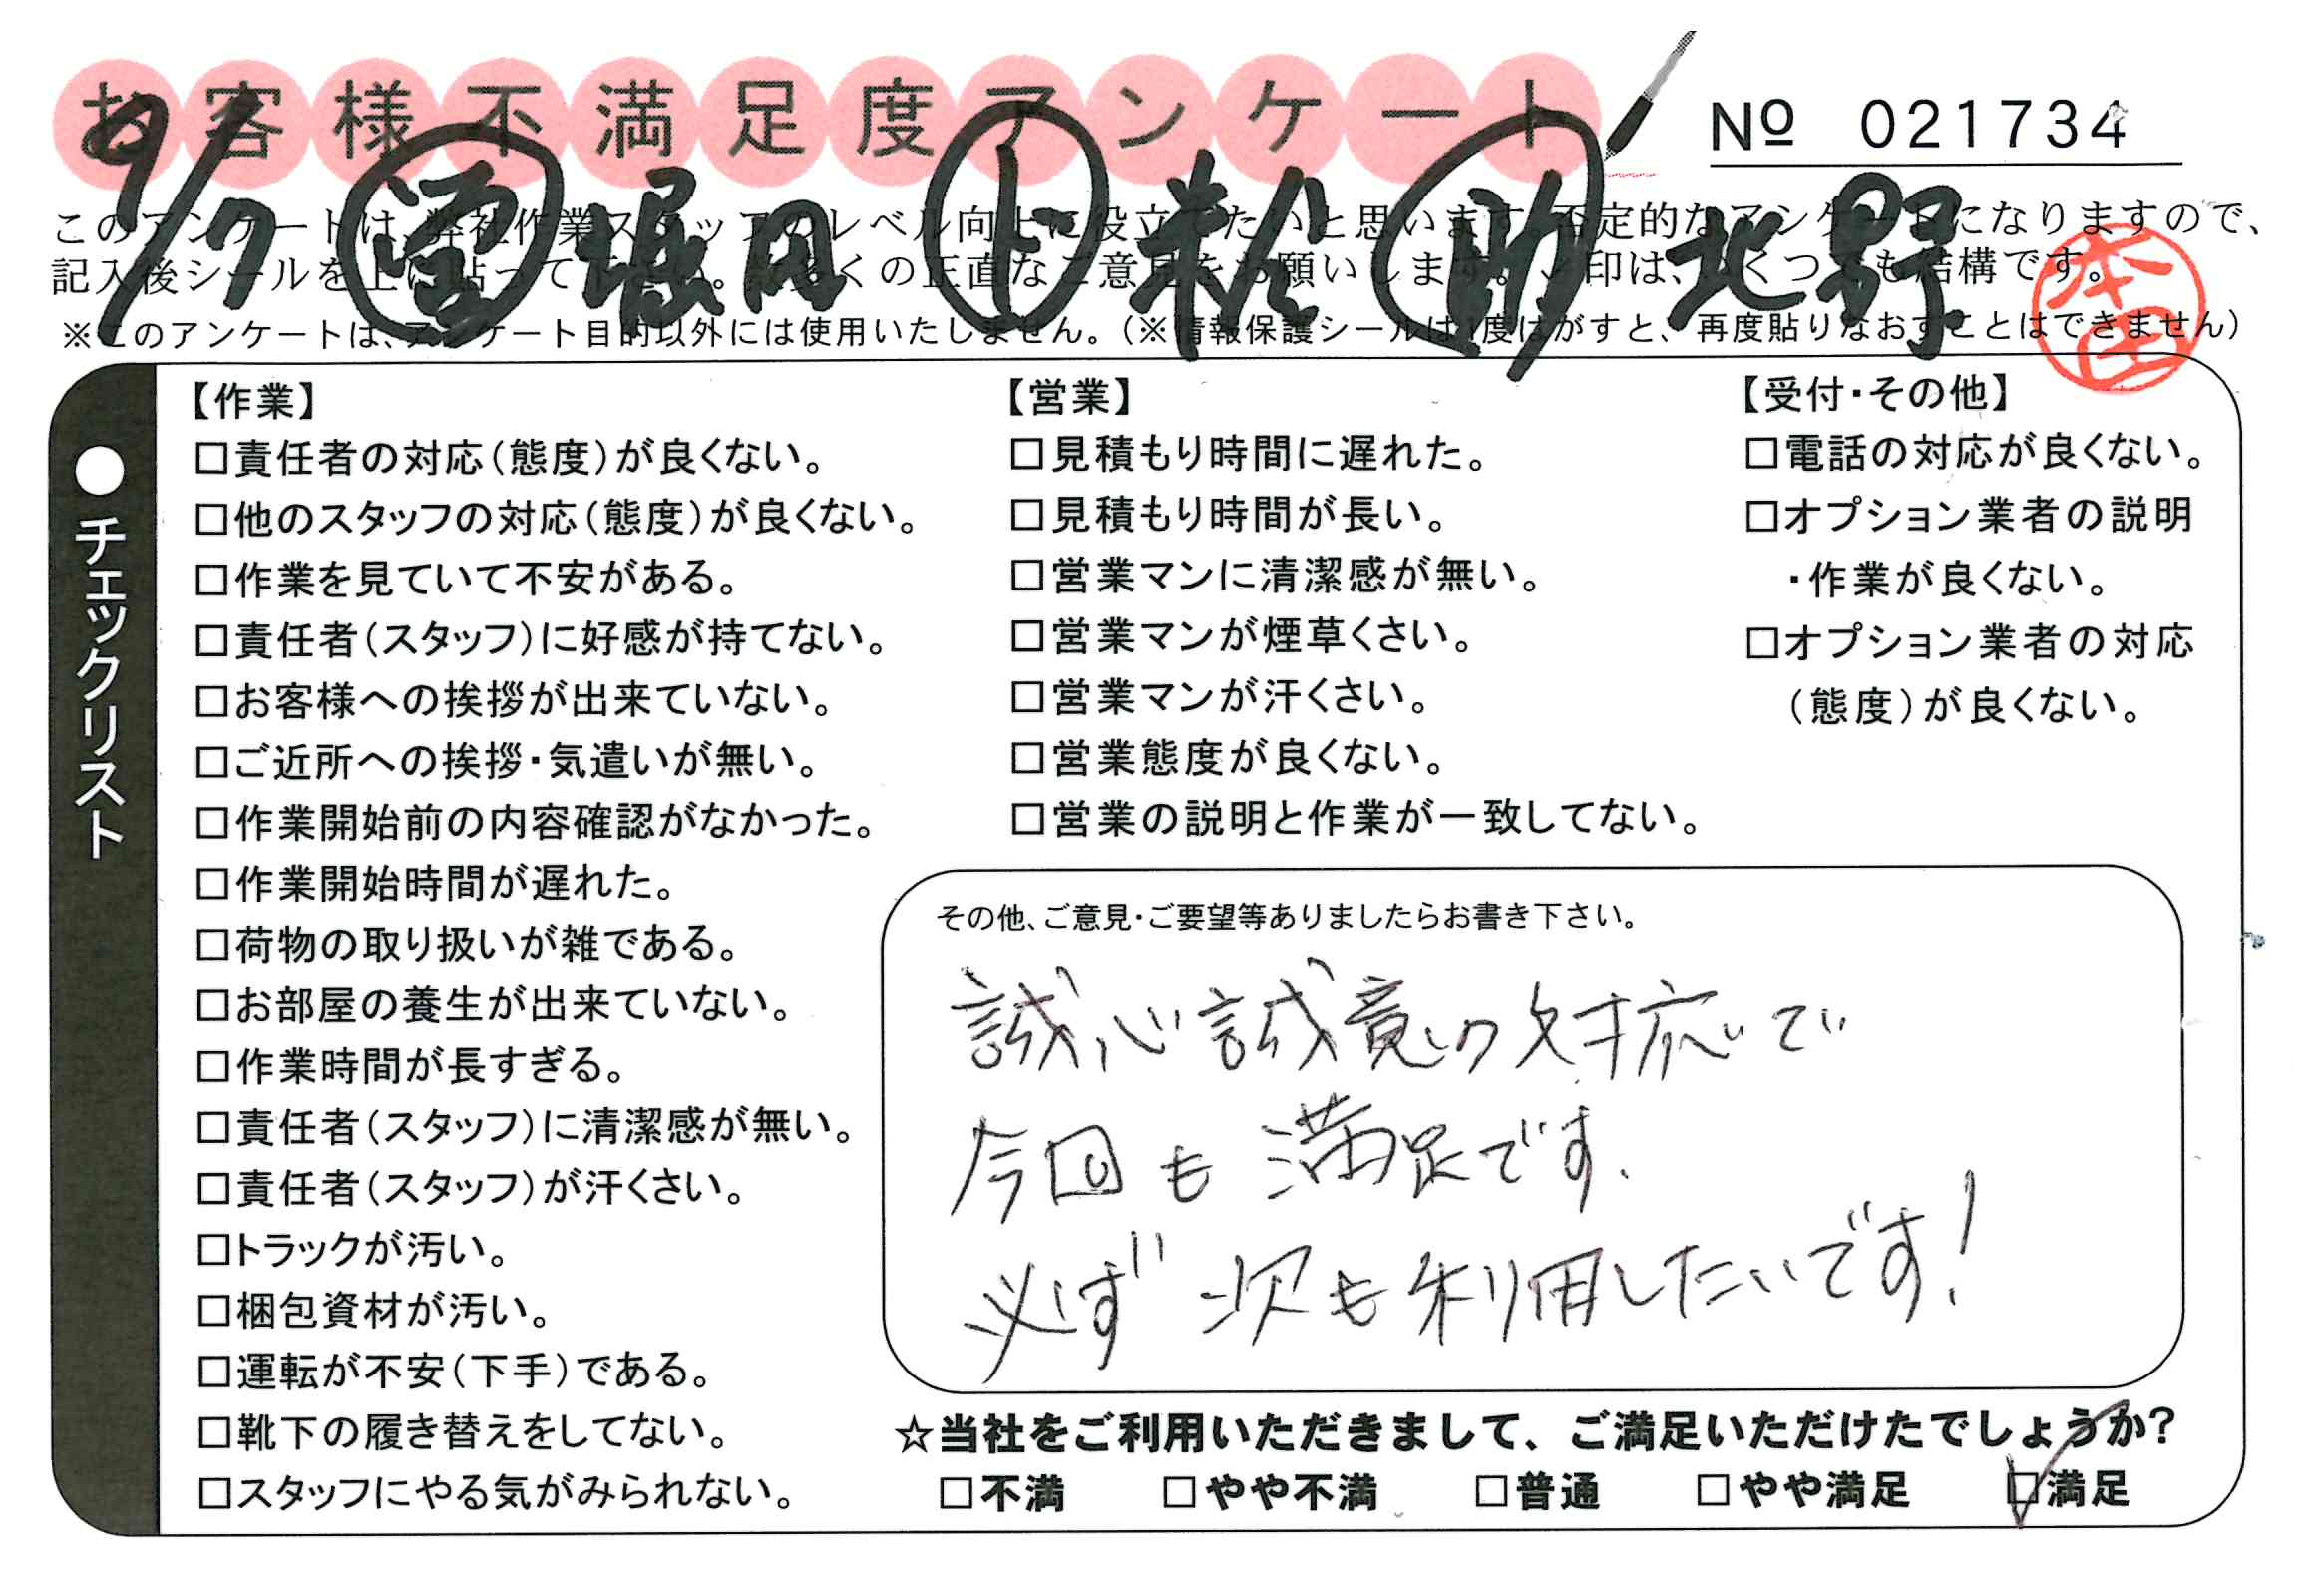 お客様不満足度アンケート
№ 021734
9/7 営 堀内 ト 助 北野
このアンケートは、弊社作業スタッフのレベル向上に役立てたいと思います。否定的なアンケートになりますので、
記入後シールを上に貼って下さい。数多くの正直なご意見をお願いします。✓印は、いくつでも結構です。
※このアンケートは、アンケート目的以外には使用いたしません。(※情報保護シールは1度はがすと、再度貼りなおすことはできません)
本田
●チェックリスト
【作業】
□責任者の対応(態度)が良くない。
□他のスタッフの対応(態度)が良くない。
□作業を見ていて不安がある。
□責任者(スタッフ)に好感が持てない。
□お客様への挨拶が出来ていない。
□ご近所への挨拶・気遣いが無い。
□作業開始前の内容確認がなかった。
□作業開始時間が遅れた。
□荷物の取り扱いが雑である。
□お部屋の養生が出来ていない。
□作業時間が長すぎる。
□責任者(スタッフ)に清潔感が無い。
□責任者(スタッフ)が汗くさい。
□トラックが汚い。
□梱包資材が汚い。
□運転が不安(下手)である。
□靴下の履き替えをしてない。
□スタッフにやる気がみられない。
【営業】
□見積もり時間に遅れた。
□見積もり時間が長い。
□営業マンに清潔感が無い。
□営業マンが煙草くさい。
□営業マンが汗くさい。
□営業態度が良くない。
□営業の説明と作業が一致してない。
【受付・その他】
□電話の対応が良くない。
□オプション業者の説明
・作業が良くない。
□オプション業者の対応
(態度)が良くない。
その他、ご意見・ご要望等ありましたらお書き下さい。
誠心誠意の対応で
今回も満足です.
必ず次も利用したいです!
☆当社をご利用いただきまして、ご満足いただけたでしょうか?
□不満 □やや不満 □普通 □やや満足 ☑満足